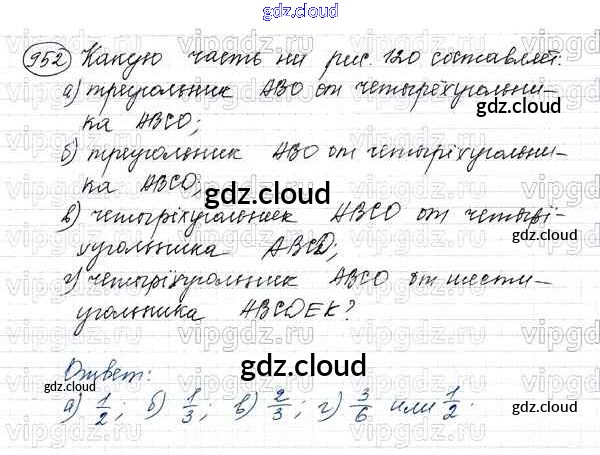 gdz.cloud
952 Какую часть на рис. 120 составляет:
а) треугольник АВО от четырёхугольни-
ка АВСО;
gdz.cloud
б) треугольник АВО от четырёхугольни-
ка АВСО;
gdz.cloud
в) четырёхугольник АВСО от четырё-
хугольника АВСD;
gdz.cloud
г) четырёхугольник АВСО от шести-
угольника АВСDЕК?
gdz.cloud
Ответ:
gdz.cloud
а) 1/2; б) 1/3; в) 2/3; г) 3/6 или 1/2.
gdz.cloud
vipgdz.com